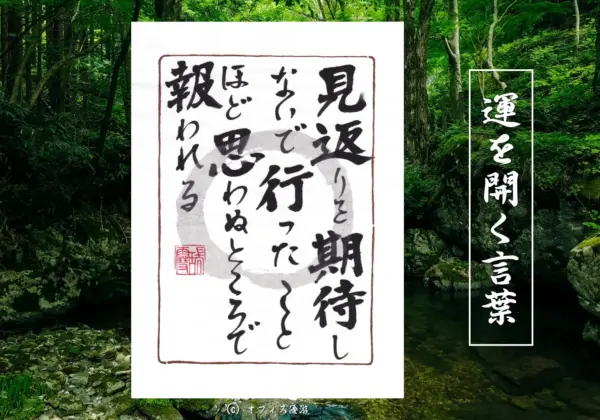 運を開く言葉
見返りを期待し
ないで行ったこと
ほど思わぬところで
報われる
(C) オフィス優游